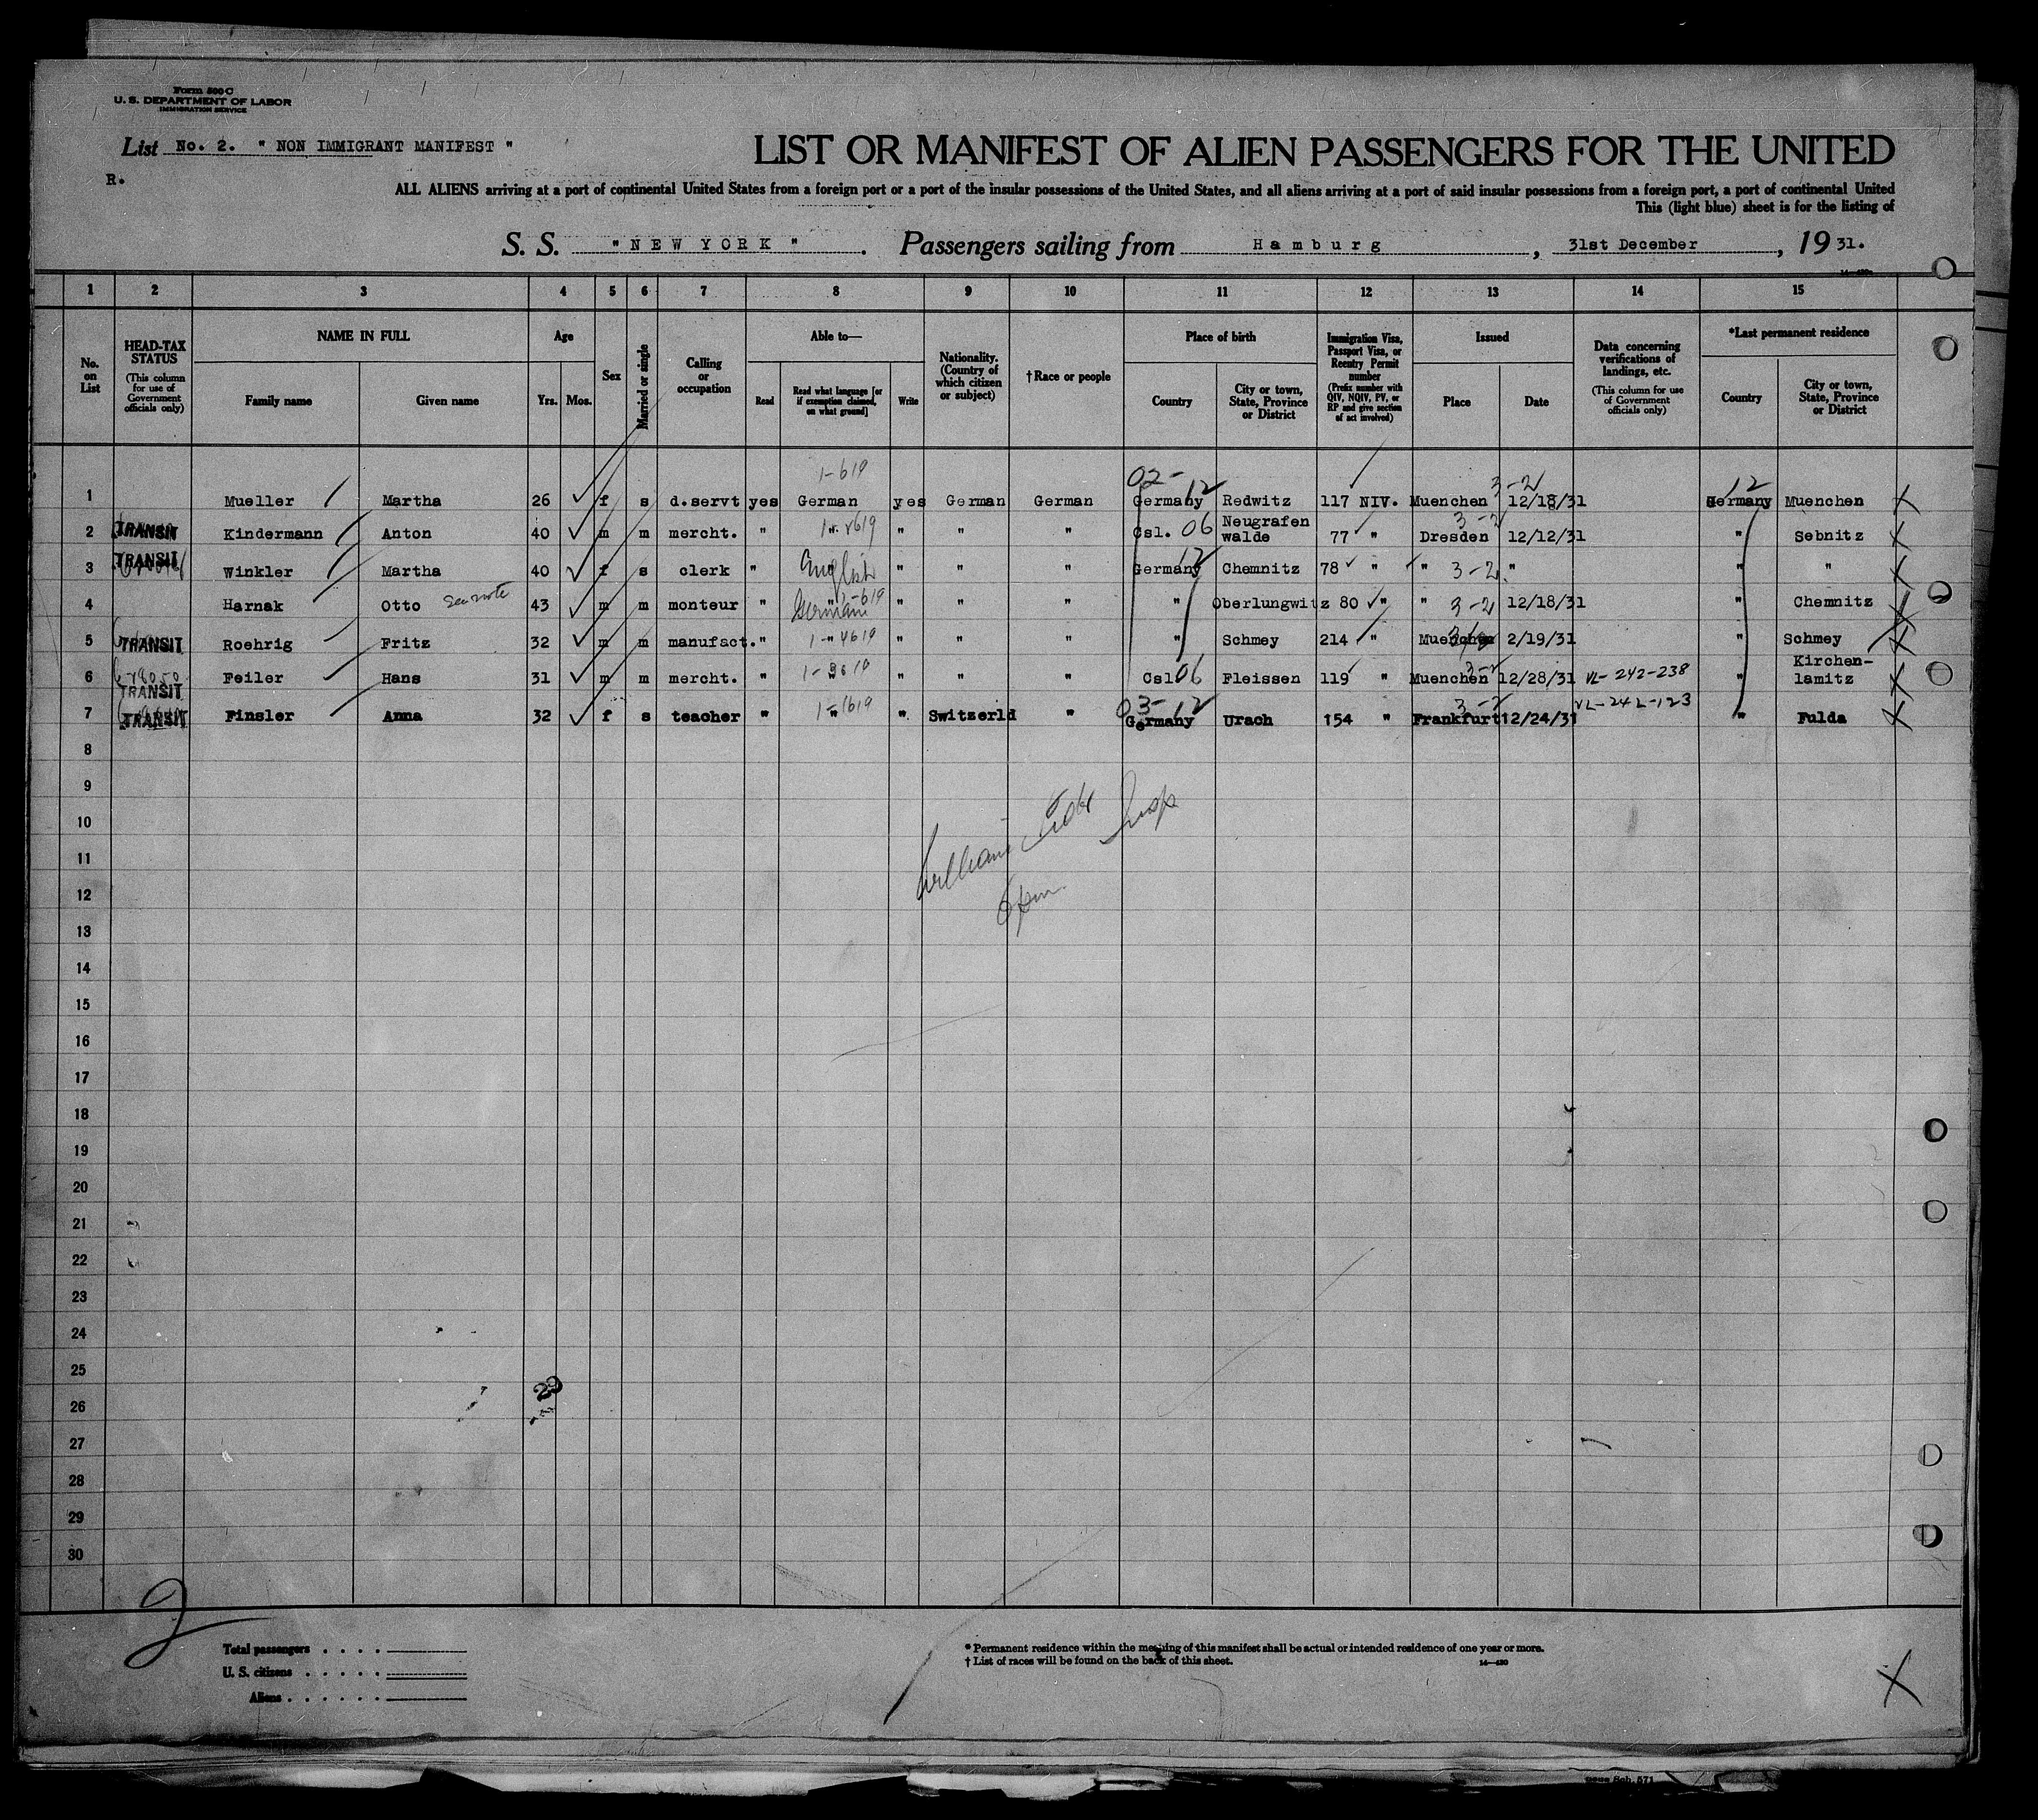 Form 500 C
U. S. DEPARTMENT OF LABOR
IMMIGRATION SERVICE
List No. 2. " NON IMMIGRANT MANIFEST "
R.
LIST OR MANIFEST OF ALIEN PASSENGERS FOR THE UNITED
ALL ALIENS arriving at a port of continental United States from a foreign port or a port of the insular possessions of the United States, and all aliens arriving at a port of said insular possessions from a foreign port, a port of continental United
This (light blue) sheet is for the listing of
S. S. " N E W Y O R K " . Passengers sailing from H a m b u r g , 31st December , 19 31.
1 2 3 4 5 6 7 8 9 10 11 12 13 14 15
No. on List
HEAD-TAX STATUS
(This column for use of Government officials only)
NAME IN FULL
Family name Given name
Age
Yrs. Mos.
Sex
Married or single
Calling or occupation
Able to—
Read Read what language [or if exemption claimed, on what ground] Write
Nationality. (Country of which citizen or subject)
†Race or people
Place of birth
Country City or town, State, Province or District
Immigration Visa, Passport Visa, or Reentry Permit number
(Prefix number with QIV, NQIV, PV, or RP and give section of act involved)
Issued
Place Date
Data concerning verifications of landings, etc.
(This column for use of Government officials only)
*Last permanent residence
Country City or town, State, Province or District
1-619 02- 12 3-2 12
1 Mueller Martha 26 f s d.servt yes German yes German German Germany Redwitz 117 NIV. Muenchen 12/18/31 Germany Muenchen X
2 TRANSIT Kindermann Anton 40 m m mercht. " " " " " Csl. 06 Neugrafen walde 77 " Dresden 3-2 12/12/31 " Sebnitz X
3 TRANSIT Winkler Martha 40 f s clerk " English " " " Germany 12 Chemnitz 78 " " 3-2 " " " X
4 Harnak Otto See note 43 m m monteur " German 1-619 " " " " Oberlungwitz 80 " " 3-2 12/18/31 " Chemnitz X
5 TRANSIT Roehrig Fritz 32 m m manufact. " " " " " " Schmey 214 " Muenchen 2/19/31 " Schmey X
6 TRANSIT Feiler Hans 31 m m mercht. " " " " Csl 06 Fleissen 119 " Muenchen 3-2 12/28/31 VL-242-238 " Kirchen-lamitz X
7 TRANSIT Finsler Anna 32 f s teacher " " " Switzerld " 03- 12 Germany Urach 154 " Frankfurt 3-2 12/24/31 VL-242-123 " Fulda X
8
9
10
William Insp
11
12
6 pm
13
14
15
16
17
18
19
20
21
22
23
24
25
26
27
28
29
30
2
Total passengers . . . .
U. S. citizens . . . . .
Aliens . . . . . .
* Permanent residence within the meaning of this manifest shall be actual or intended residence of one year or more.
† List of races will be found on the back of this sheet.
14—430
X